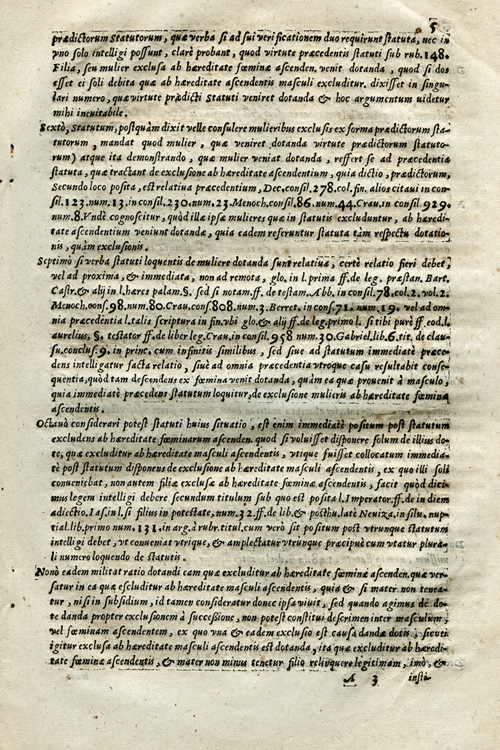 5
prædictorum Statutorum, quæ verba si ad sui verificationem duo requirunt statuta, nec in
vno solo intelligi possunt, clarè probant, quod virtute præcedentis statuti sub rub. 148.
Filia, seu mulier exclusa ab hæreditate fœminæ ascenden. venit dotanda, quod si dos
esset ei soli debita quæ ab hæreditate ascendentis masculi excluditur. dixisset in singu-
lari numero, quæ virtute prædicti Statuti veniret dotanda & hoc argumentum uidetur
mihi ineuitabile.
Sextò, Statutum, postquàm dixit velle consulere mulieribus exclusis ex forma prædictorum sta-
tutorum, mandat quod mulier, quæ veniret dotanda virtute prædictorum statuto-
rum) atque ita demonstrando, quæ mulier veniat dotanda, reffert se ad præcedentia
statuta, quæ tractant de exclusione ab hæreditate ascendentium, quia dictio, prædictorum,
Secundo loco posita, est relatiua præcedentium, Dec. consil. 278. col. fin. alios citaui in con-
sil. 123. num. 13. in consil. 230. num. 23. Menoch. consil. 86. num. 44. Crau. in consil. 929.
num. 8. Vndè cognoscitur, quòd illæ ipsæ mulieres quæ in statutis excluduntur, ab hæredi-
tate ascendentium veniunt dotandæ, quia eadem referuntur statuta tàm respectu dotatio-
nis, quàm exclusionis.
Septimò si verba statuti loquentis de muliere dotanda sunt relatiua, certè relatio fieri debet,
vel ad proxima, & immediata, non ad remota, glo. in l. prima ff. de leg. præstan. Bart.
Castr. & alij in l. hæres palam. §. sed si notam. ff. de testam. Abb. in consil. 78. col. 2. vol. 2.
Menoch. cons. 98. num. 80. Crau. cons. 808. num. 3. Berret. in cons. 71. num. 19. vel ad om-
nia præcedentia l. talis scriptura in fin. vbi glo. & alij ff. de leg. primo l. si tibi purè ff. eod. l.
aurelius, §. testator ff. de liber leg. Crau. in consil. 958 num. 30. Gabriel. lib. 6. tit. de clau-
su. conclus. 9. in princ. cum infinitis similibus, sed siue ad statutum immediatè præce-
dens intelligatur facta relatio, siuè ad omnia præcedentia vtroque casu resultabit conse-
quentia, quòd tam descendens ex fœmina venit dotanda, quàm ea quæ prouenit à masculo,
quia immediatè præcedens statutum loquitur, de exclusione mulieris ab hæreditate fœminæ
ascendentis.
Octauò considerari potest statuti huius situatio, est enim immediatè positum post statutum
excludens ab hæreditate fœminarum ascenden. quod si voluisset disponere solum de illius do-
te, quæ excluditur ab hæreditate masculi ascendentis, vtique fuisset collocatum immedia-
tè post statutum disponens de exclusione ab hæreditate masculi ascendentis, ex quo illi soli
conueniebat, non autem filiæ exclusæ ab hæreditate fœminæ ascendentis, facit quòd dici-
mus legem intelligi debere secundum titulum sub quo est posita l. Imperator. ff. de in diem
adiectio. Ias. in l. si filius in potestate, num. 32. ff. de lib. & posthu. latè Neuiza. in silu. nup-
tial. lib. primo num. 131. in arg. à rubr. titul. cum verò sit positum post vtrunque statutum
intelligi debet, vt conueniat vtrique, & amplectatur vtrunque præcipuè cum vtatur plura-
li numero loquendo de statutis.
Nonò eadem militat ratio dotandi eam quæ excluditur ab hæreditate fœminæ ascenden. quæ ver-
satur in ea quæ escluditur ab hæreditate masculi ascendentis, quia & si mater non tenea-
tur, nisi in subsidium, id tamen consideratur donec ipsa viuit, sed quando agimus de do-
te danda propter exclusionem à successione, non potest constitui descrimen inter masculum,
vel fœminam ascendentem, ex quo vna & eadem exclusio est causa dandæ dotis, sicuti
igitur exclusa ab hæreditate masculi ascendentis est dotanda, ita quæ excluditur ab hæredi-
tate fœminæ ascendentis, & mater non minus tenetur filio relinquere legitimam, imò, &
A 3 insti-